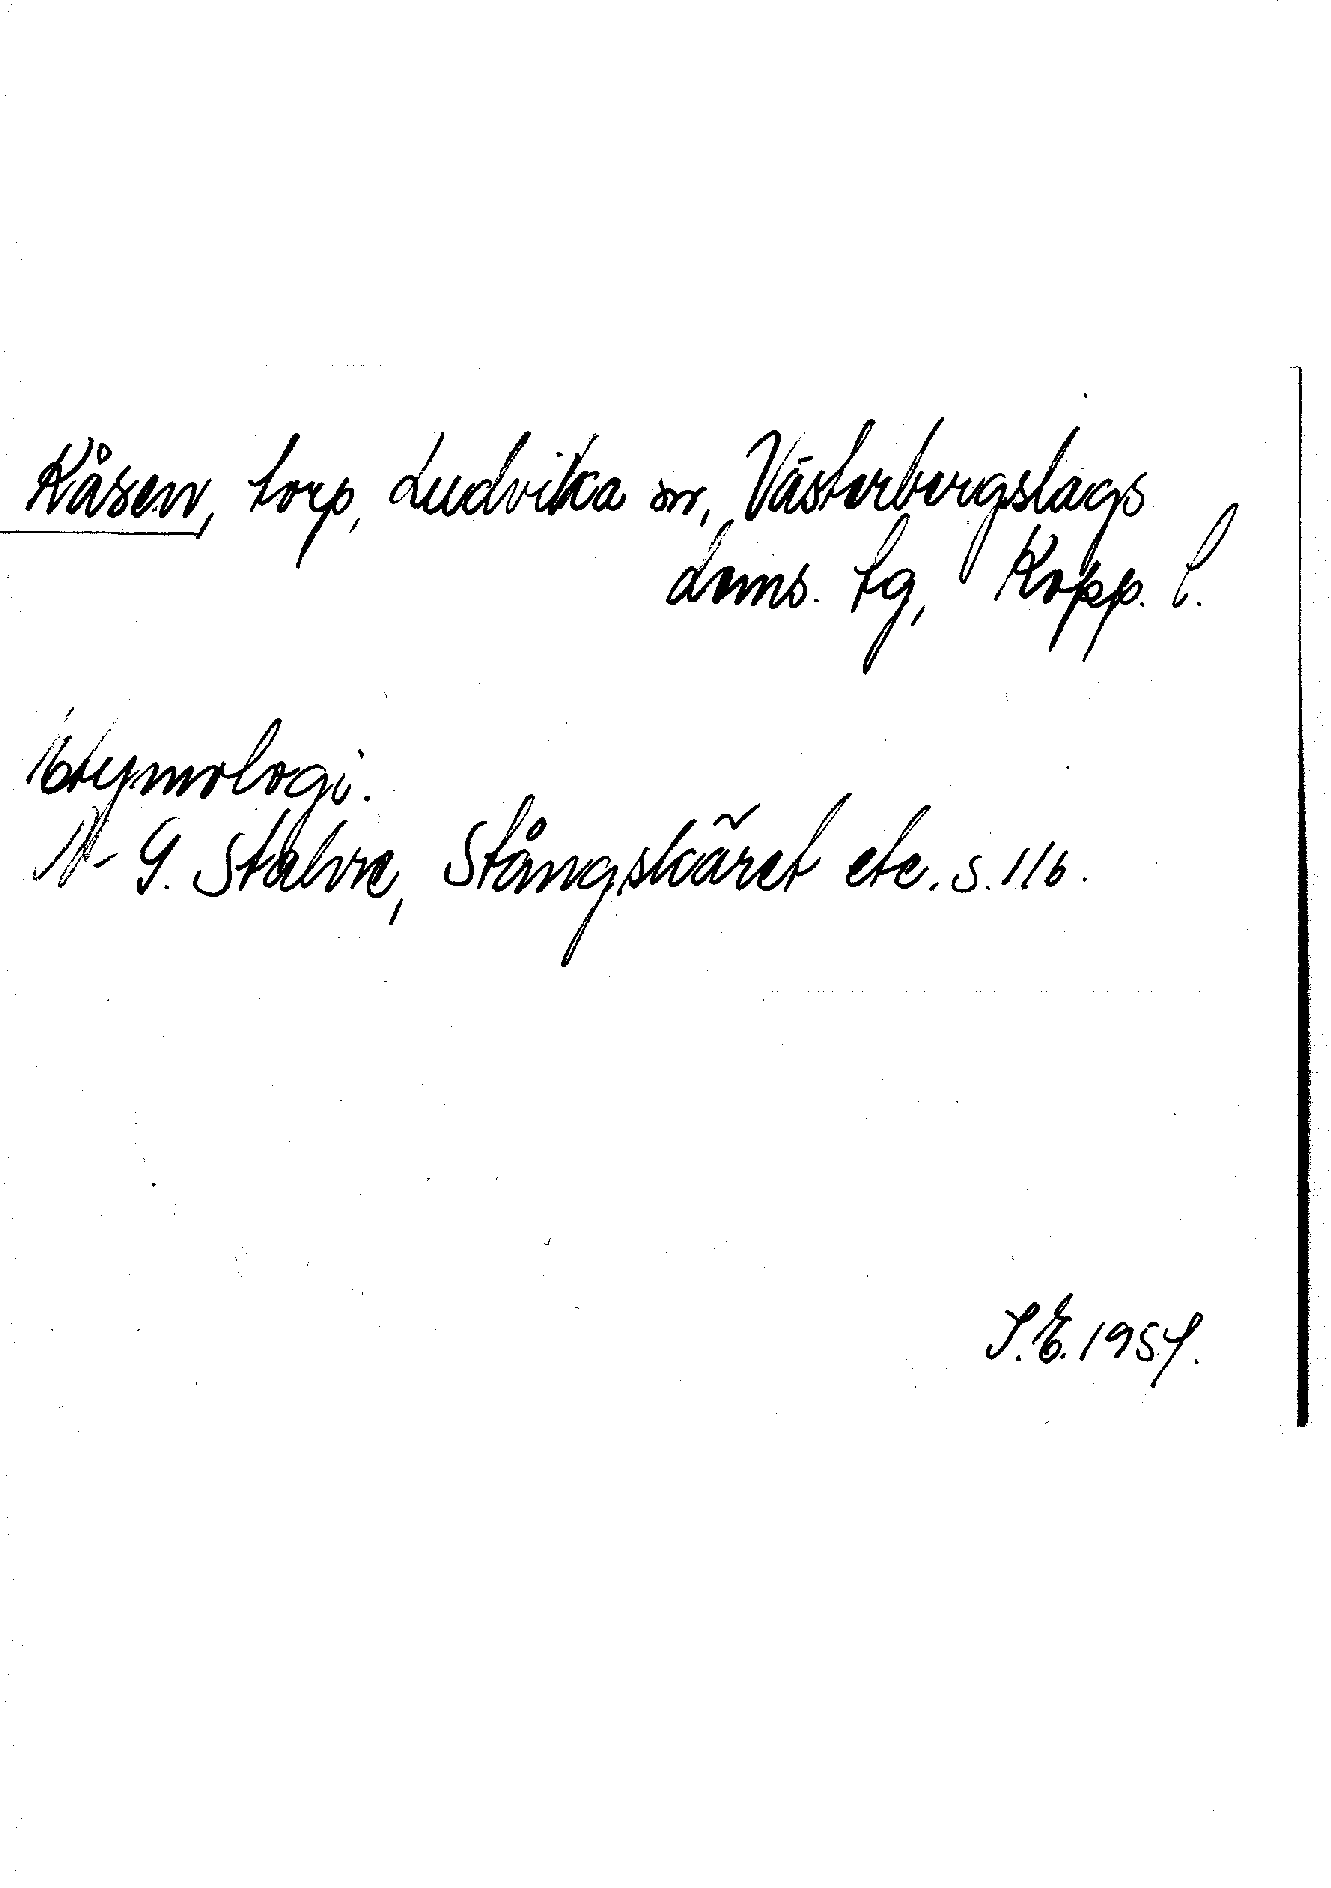 Kåsen, torp, Ludvika sn, Västerbergslags
doms. tg, Kopp. l.
Etymologi.
N-G. Stahre, Stångskäret etc. s. 116.
S.E. 1954.